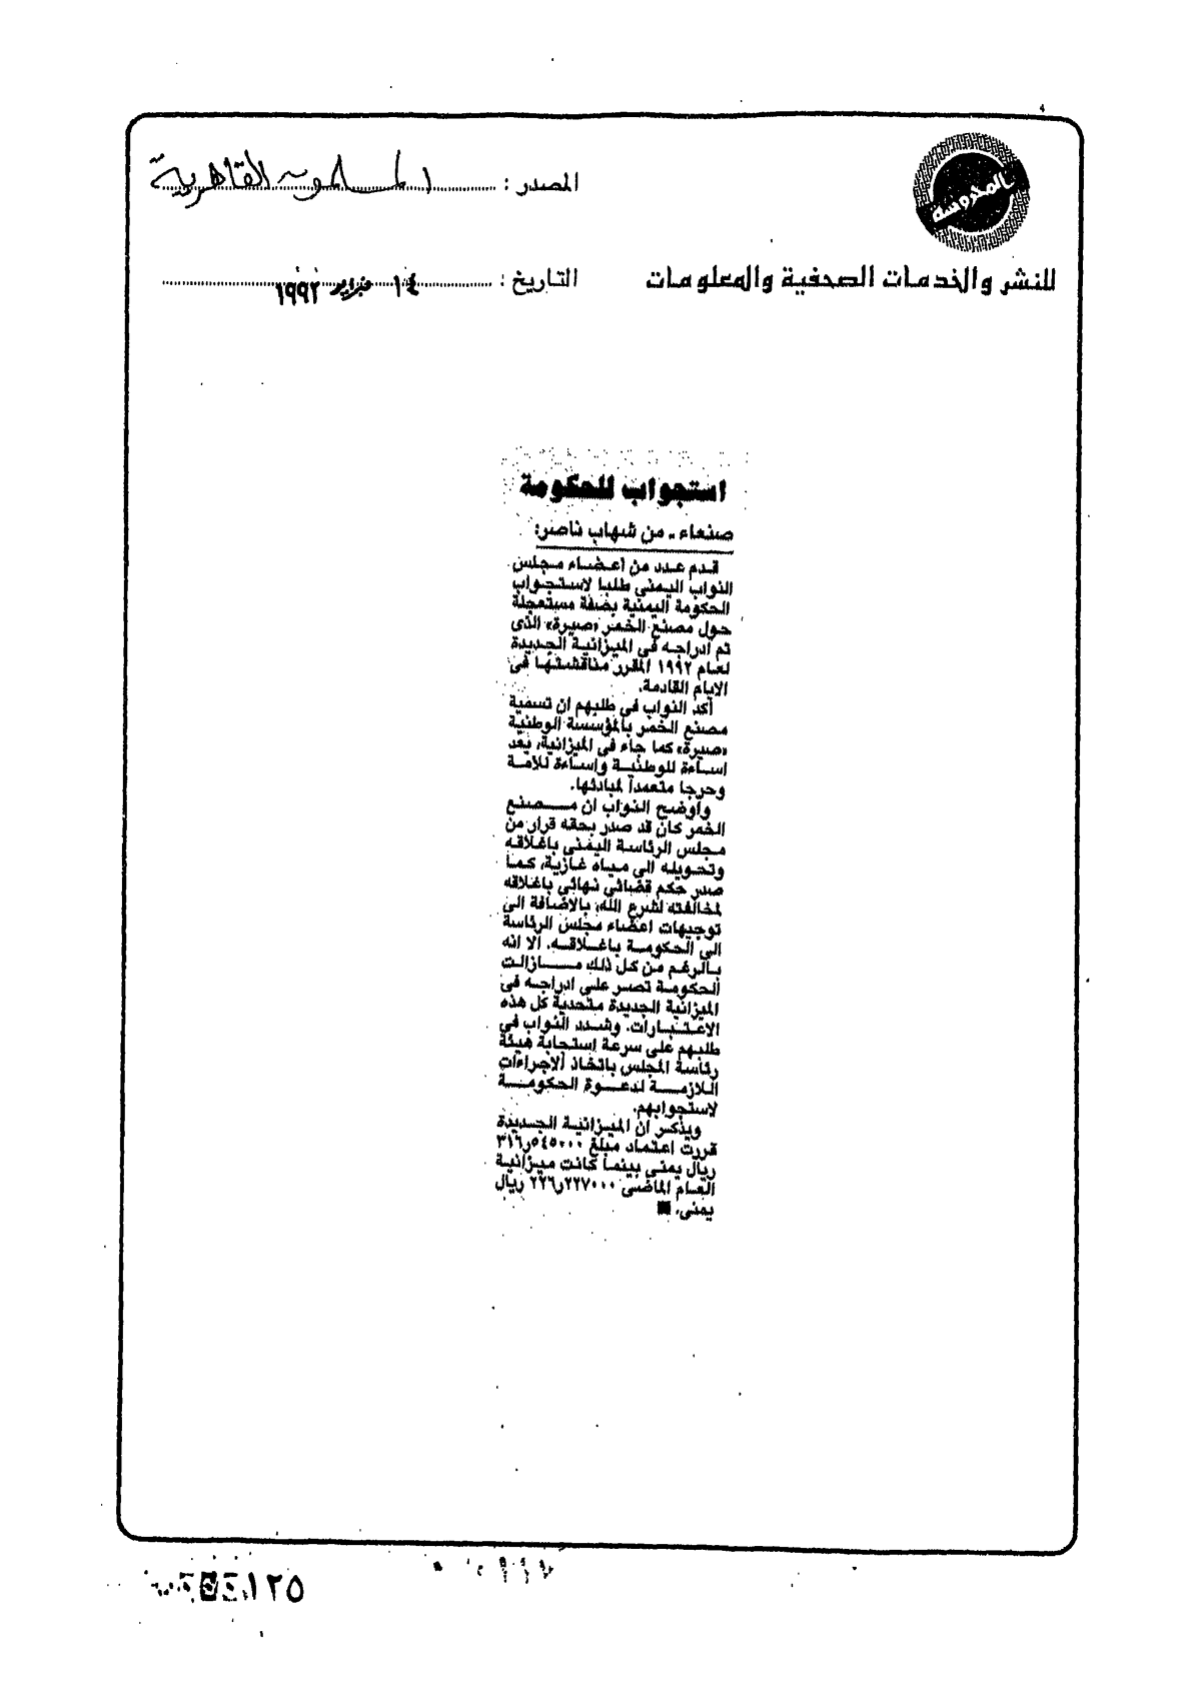 المحروسة
المصدر : المسلمون القاهرية
للنشر والخدمات الصحفية والمعلومات
التاريخ : ١٤ فبراير ١٩٩٢
استجواب للحكومة
صنعاء - من شهاب ناصر:
قدم عدد من اعضاء مجلس
النواب اليمنى طلبا لاستجواب
الحكومة اليمنية بصفة مستعجلة
حول مصنع الخمر «صيرة» الذى
تم ادراجه فى الميزانية الجديدة
لعام ١٩٩٢ المقرر مناقشتها فى
الايام القادمة.
أكد النواب فى طلبهم ان تسمية
مصنع الخمر بالمؤسسة الوطنية
«صيرة» كما جاء فى الميزانية، يعد
اساءة للوطنية واساءة للامة
وحرجا متعمداً لمبادئها.
واوضح النواب ان مصنع
الخمر كان قد صدر بحقه قرار من
مجلس الرئاسة اليمنى باغلاقه
وتحويله الى مياه غازية، كما
صدر حكم قضائى نهائى باغلاقه
لمخالفته لشرع الله، بالاضافة الى
توجيهات اعضاء مجلس الرئاسة
الى الحكومة باغلاقه. الا انه
بالرغم من كل ذلك مازالت
الحكومة تصر على ادراجه فى
الميزانية الجديدة متحدية كل هذه
الاعتبارات. وشدد النواب فى
طلبهم على سرعة استجابة هيئة
رئاسة المجلس باتخاذ الاجراءات
اللازمة لدعوة الحكومة
لاستجوابهم.
ويذكر ان الميزانية الجديدة
قررت اعتماد مبلغ ٣١٦٫٥٤٥٠٠٠
ريال يمنى بينما كانت ميزانية
العام الماضى ٢٢٦٫٢٢٧٠٠٠ ريال
يمنى.
١٢٥